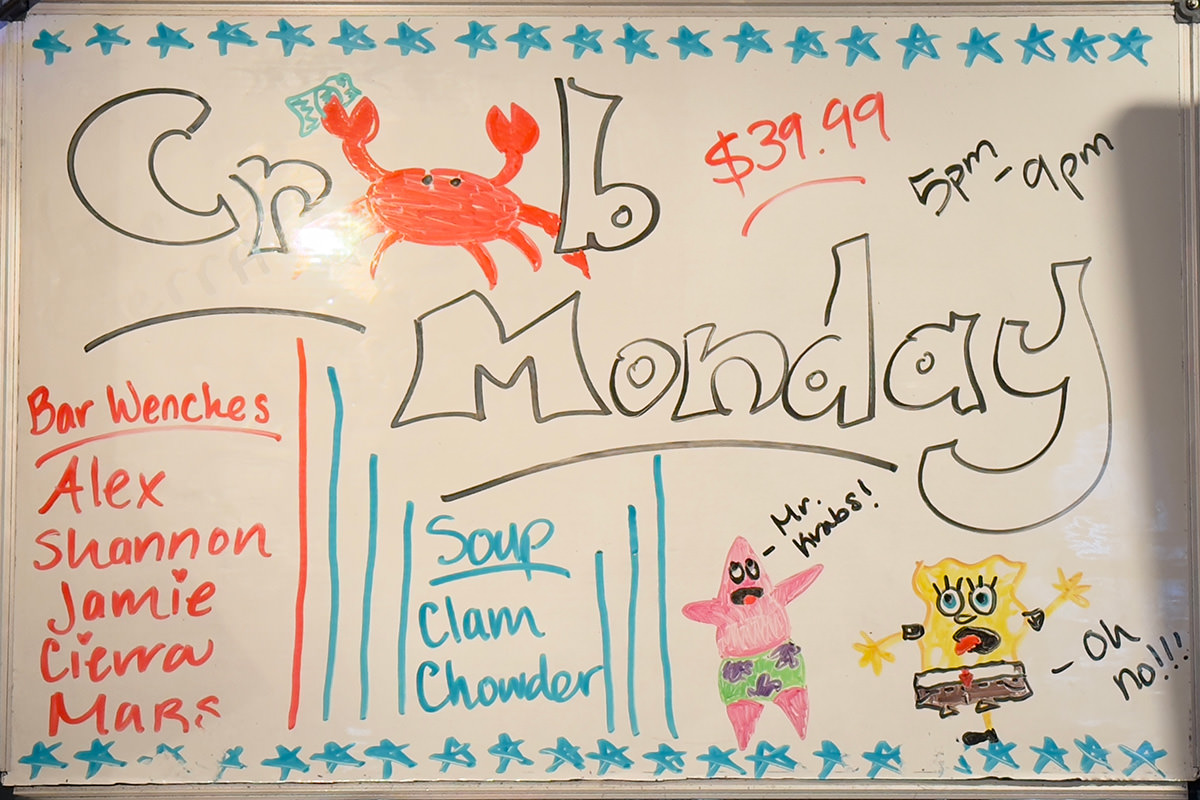 Crab
$39.99
5pm-9pm
Monday
Bar Wenches
Alex
Shannon
Jamie
Cierra
Mars
Soup
Clam
Chowder
- Mr.
Krabs!
- Oh
no!!!